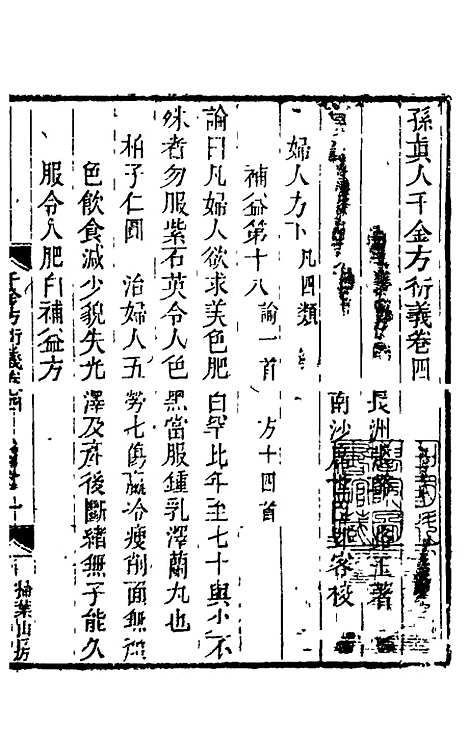 孫真人千金方衍義卷四
長洲張璐路玉著
南沙席世臣郢客校
婦人方下 凡四類
補益第十八 論一首 方十四首
論曰凡婦人欲求美色肥白罕比年至七十與少不
殊者勿服紫石英令人色黑當服鍾乳澤蘭丸也
柏子仁圓 治婦人五勞七傷羸冷瘦削面無顏
色飲食減少貌失光澤及產後斷緒無子能久
服令人肥白補益方
千金方衍義卷四
掃葉山房